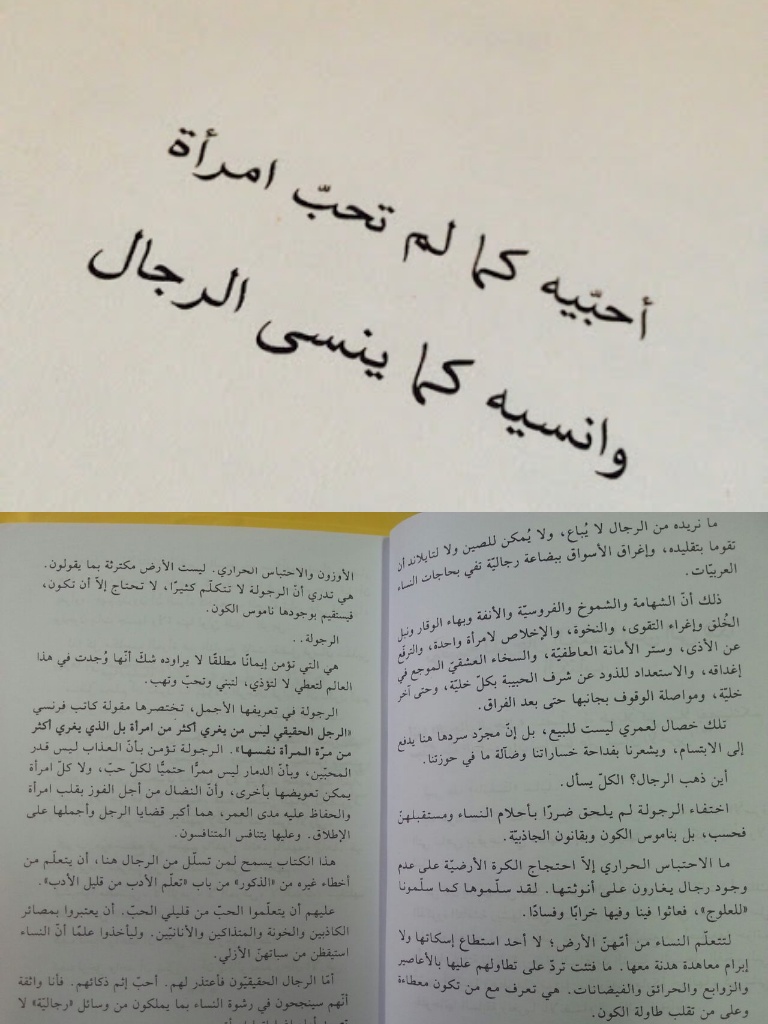 أحبّيه كما لم تحبّ امرأة
وانسيه كما ينسى الرجال
ما نريده من الرجال لا يُباع، ولا يُمكن للصين ولا لتايلاند أن
تقوما بتقليده، وإغراق الأسواق ببضاعة رجاليّة تفي بحاجات النساء
العربيّات.
ذلك أنّ الشهامة والشموخ والفروسيّة والأنفة وبهاء الوقار ونبل
الخُلق وإغراء التقوى، والنخوة، والإخلاص لامرأة واحدة، والترفّع
عن الأذى، وستر الأمانة العاطفيّة، والسخاء العشقيّ الموجع في
إغداقه، والاستعداد للذود عن شرف الحبيبة بكلّ خليّة، وحتى آخر
خليّة، ومواصلة الوقوف بجانبها حتى بعد الفراق.
تلك خصال لعمري ليست للبيع، بل إنّ مجرّد سردها هنا يدفع
إلى الابتسام، ويشعرنا بفداحة خساراتنا وضآلة ما في حوزتنا.
أين ذهب الرجال؟ الكلّ يسأل.
اختفاء الرجولة لم يلحق ضررًا بأحلام النساء ومستقبلهنّ
فحسب، بل بناموس الكون وبقانون الجاذبيّة.
ما الاحتباس الحراري إلاّ احتجاج الكرة الأرضيّة على عدم
وجود رجال يغارون على أنوثتها. لقد سلّموها كما سلّمونا
«للعلوج»، فعاثوا فينا وفيها خرابًا وفسادًا.
لتتعلّم النساء من أمّهنّ الأرض؛ لا أحد استطاع إسكاتها ولا
إبرام معاهدة هدنة معها. ما فتئت تردّ على تطاولهم عليها بالأعاصير
والزوابع والحرائق والفيضانات. هي تعرف مع من تكون معطاءة
وعلى من تقلب طاولة الكون.
الأوزون والاحتباس الحراري. ليست الأرض مكترثة بما يقولون.
هي تدري أنّ الرجولة لا تتكلّم كثيرًا، لا تحتاج إلاّ أن تكون،
فيستقيم بوجودها ناموس الكون.
الرجولة..
هي التي تؤمن إيمانًا مطلقًا لا يراوده شكّ أنّها وُجدت في هذا
العالم لتعطي لا لتؤذي، لتبني وتحبّ وتهب.
الرجولة في تعريفها الأجمل، تختصرها مقولة كاتب فرنسي
«الرجل الحقيقي ليس من يغري أكثر من امرأة بل الذي يغري أكثر
من مرّة المرأة نفسها». الرجولة تؤمن بأنّ العذاب ليس قدر
المحبّين، وبأنّ الدمار ليس ممرًّا حتميًّا لكلّ حبّ، ولا كلّ امرأة
يمكن تعويضها بأخرى، وأنّ النضال من أجل الفوز بقلب امرأة
والحفاظ عليه مدى العمر، هما أكبر قضايا الرجل وأجملها على
الإطلاق. وعليها يتنافس المتنافسون.
هذا الكتاب يسمح لمن تسلّل من الرجال هنا، أن يتعلّم من
أخطاء غيره من «الذكور» من باب «تعلّم الأدب من قليل الأدب».
عليهم أن يتعلّموا الحبّ من قليلي الحبّ. أن يعتبروا بمصائر
الكاذبين والخونة والمتذاكين والأنانيّين. وليأخذوا علمًا أنّ النساء
استيقظن من سباتهنّ الأزلي.
أمّا الرجال الحقيقيّون فأعتذر لهم. أحبّ إثم ذكائهم. فأنا واثقة
أنّهم سينجحون في رشوة النساء بما يملكون من وسائل «رجاليّة» لا